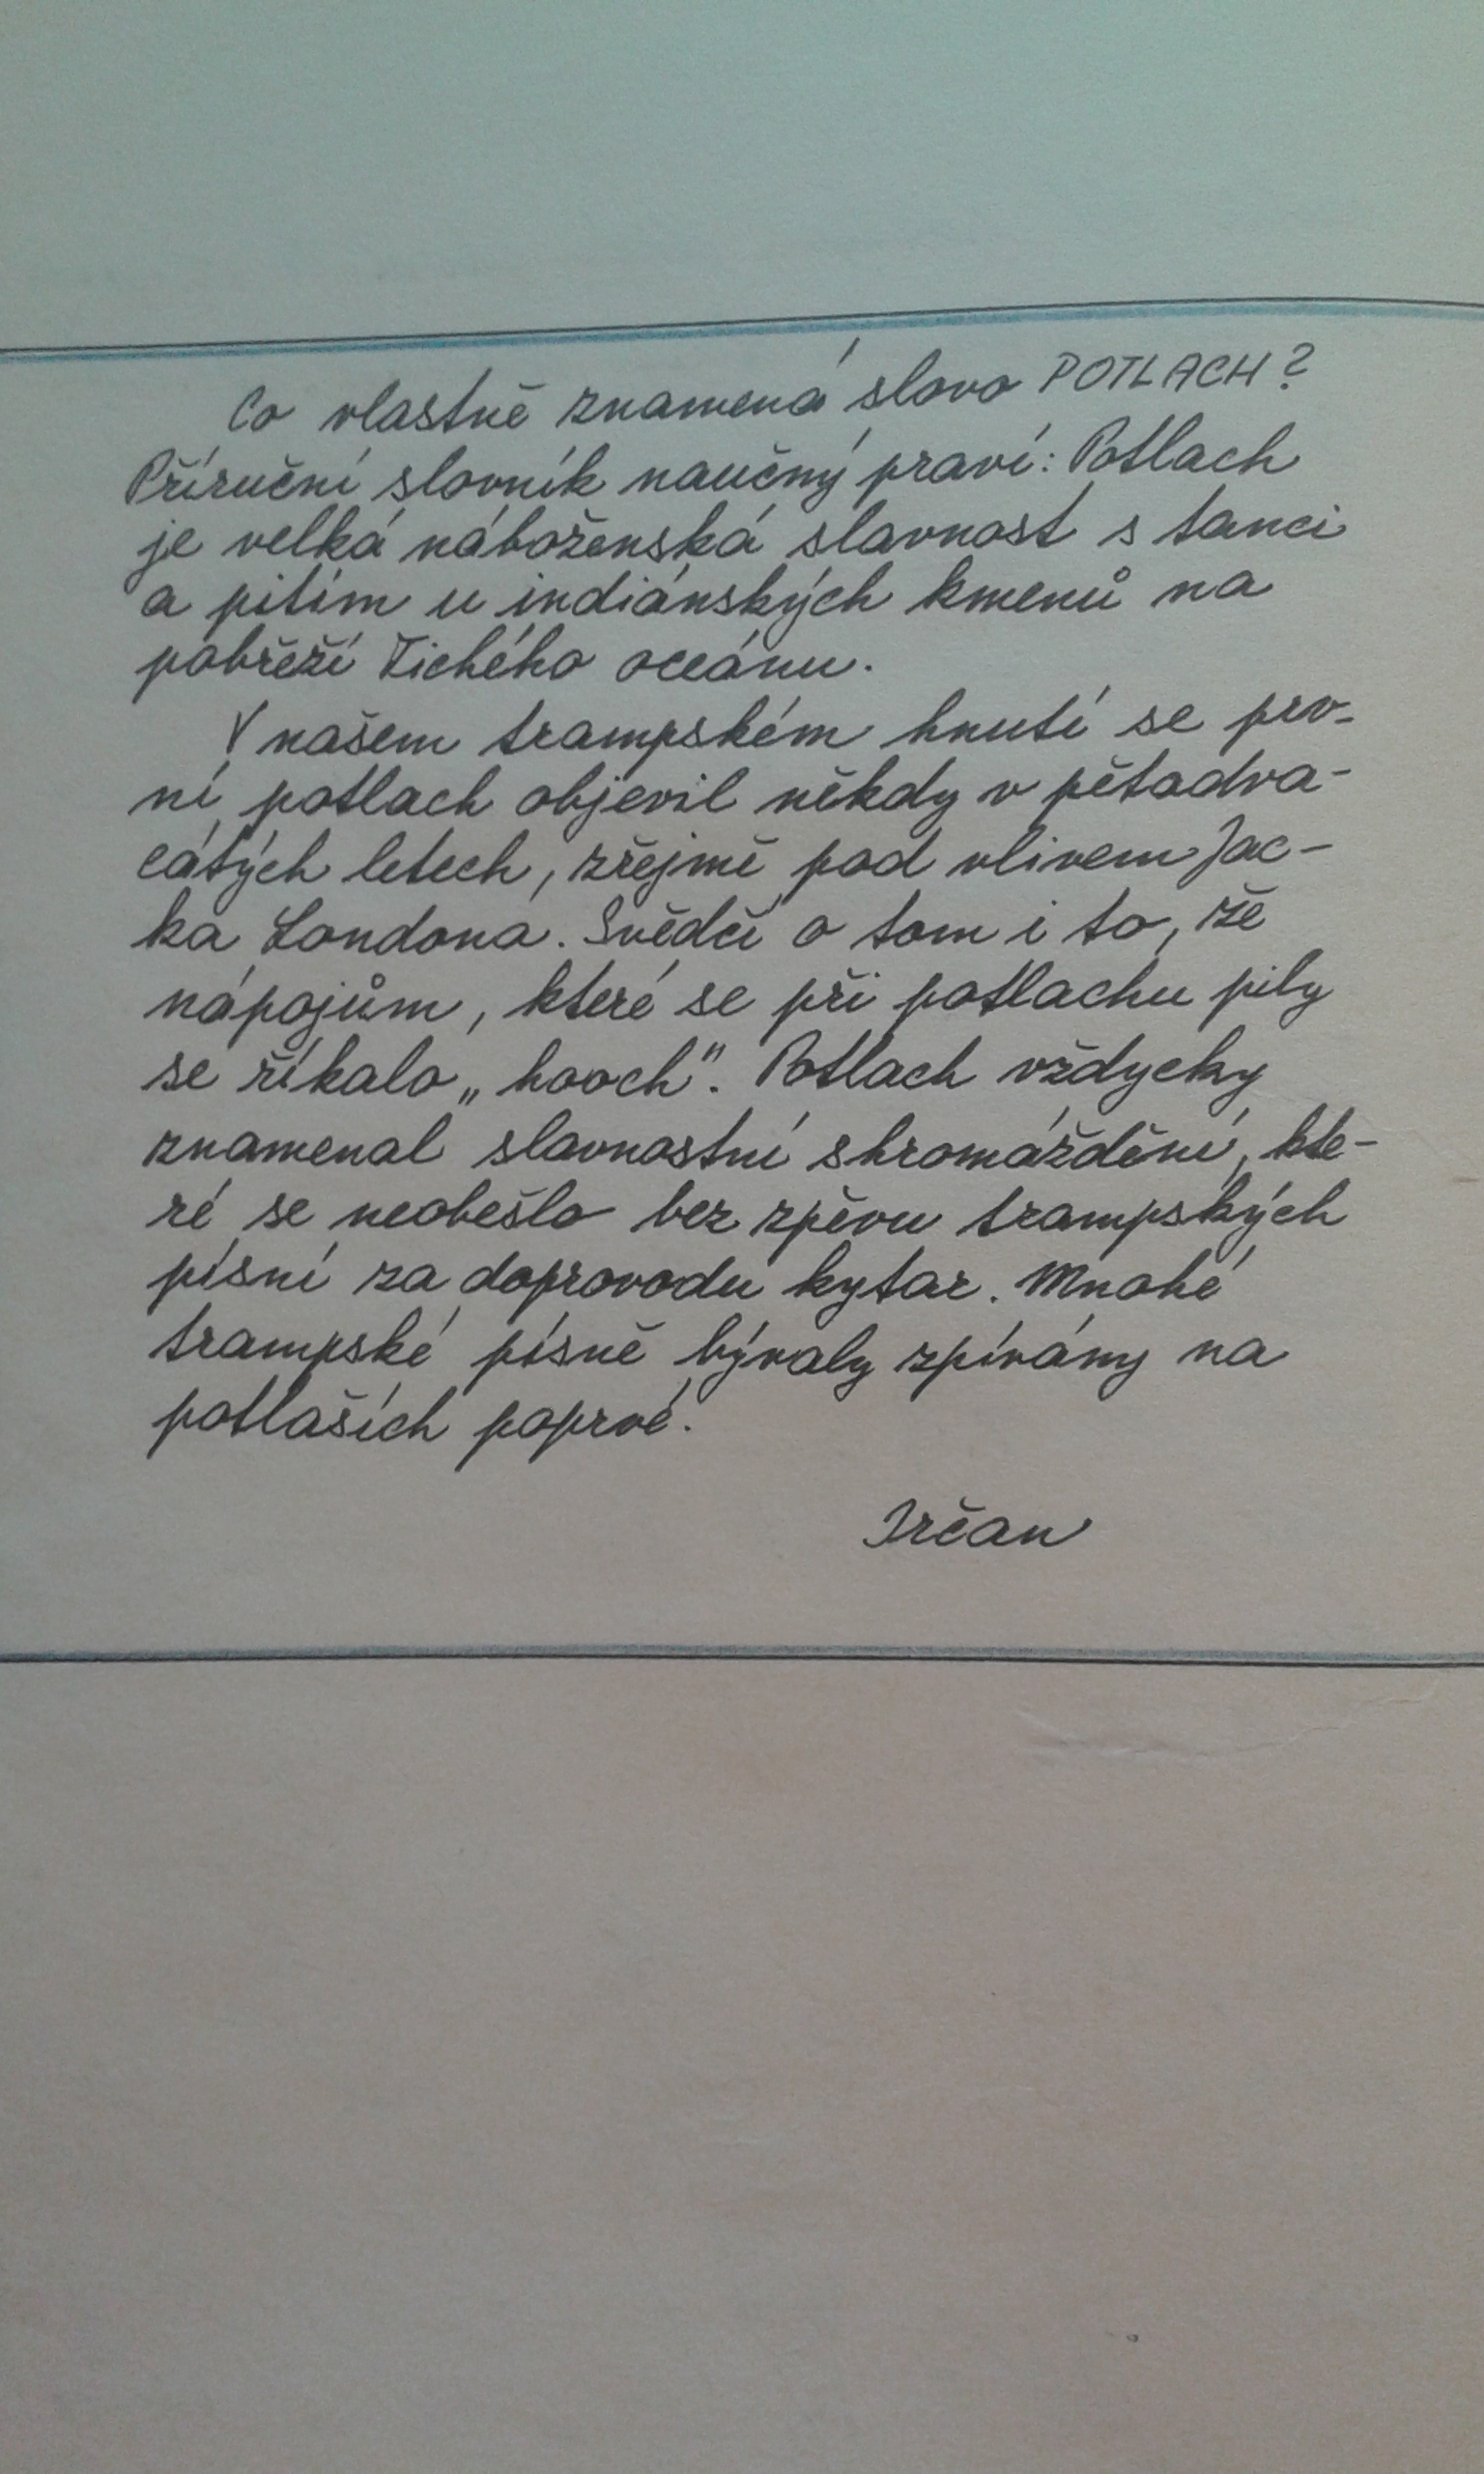 Co vlastně znamená slovo POTLACH?
Příruční slovník naučný praví: Potlach
je velká náboženská slavnost s tanci
a pitím u indiánských kmenů na
pobřeží Tichého oceánu.
V našem trampském hnutí se prv-
ní potlach objevil někdy v pětadva-
cátých letech, zřejmě pod vlivem Jac-
ka Londona. Svědčí o tom i to, že
nápojům, které se při potlachu pily
se říkalo „hooch". Potlach vždycky
znamenal slavnostní shromáždění, kte-
ré se neobešlo bez zpěvu trampských
písní za doprovodu kytar. Mnohé
trampské písně bývaly zpívány na
potlaších poprvé.
Irčan